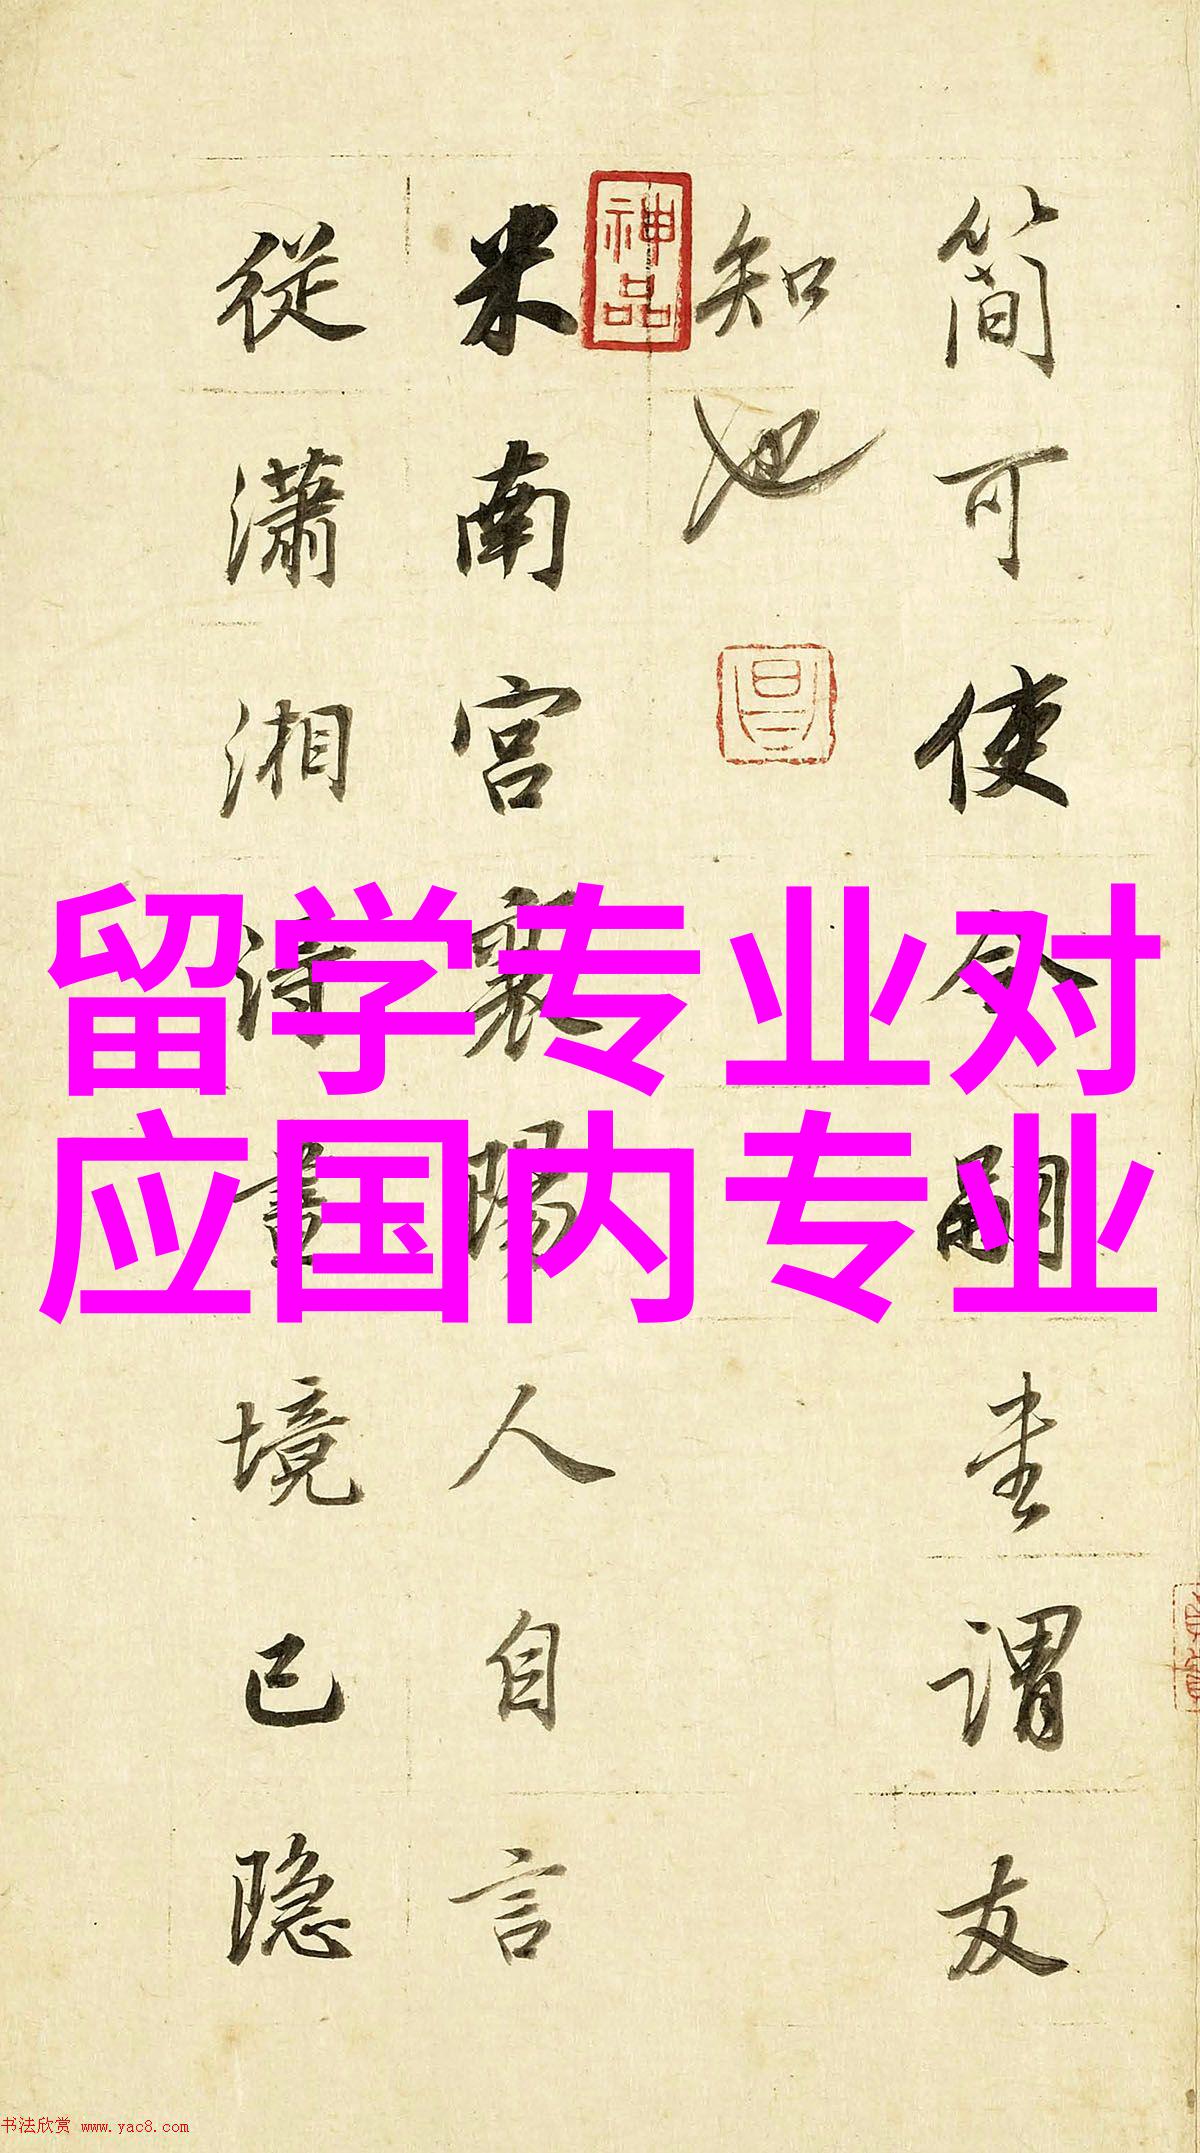 簡可使令嗣圭谓友
知也
米南宮襄陽人自言
從瀟湘得畫境已隐
神品
留学专业对
应国内专业
书法欣赏 www.yac8.com